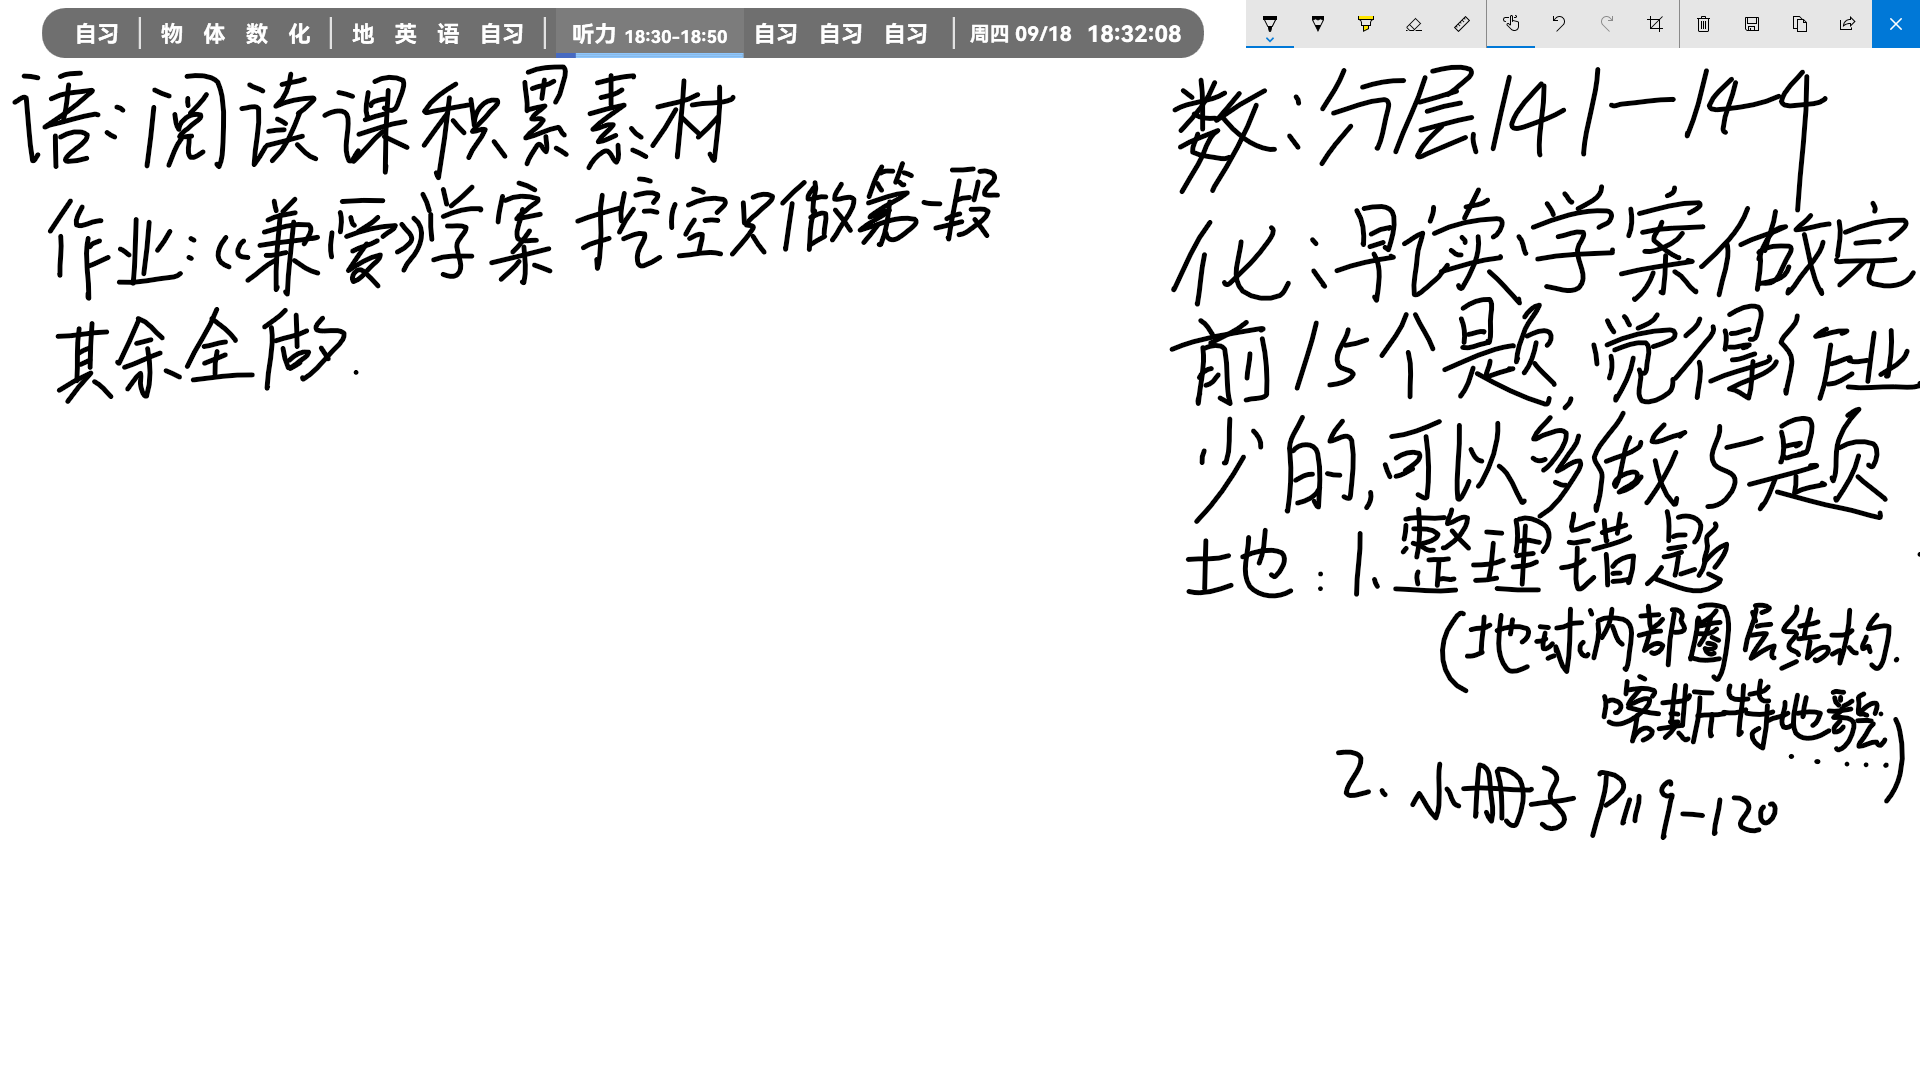 自习 | 物 体 数 化 | 地 英 语 自习 | 听力 18:30-18:50 自习 自习 自习 | 周四 09/18 18:32:08
语:阅读课积累素材
作业:《兼爱》学案 挖空只做第一段
其余全做.
数:分层141—144
化:早读学案做完
前15个题,觉得作业
少的,可以多做5是题
地:1.整理错题
(地球内部圈层结构.
喀斯特地貌......)
2.小册子P119-120